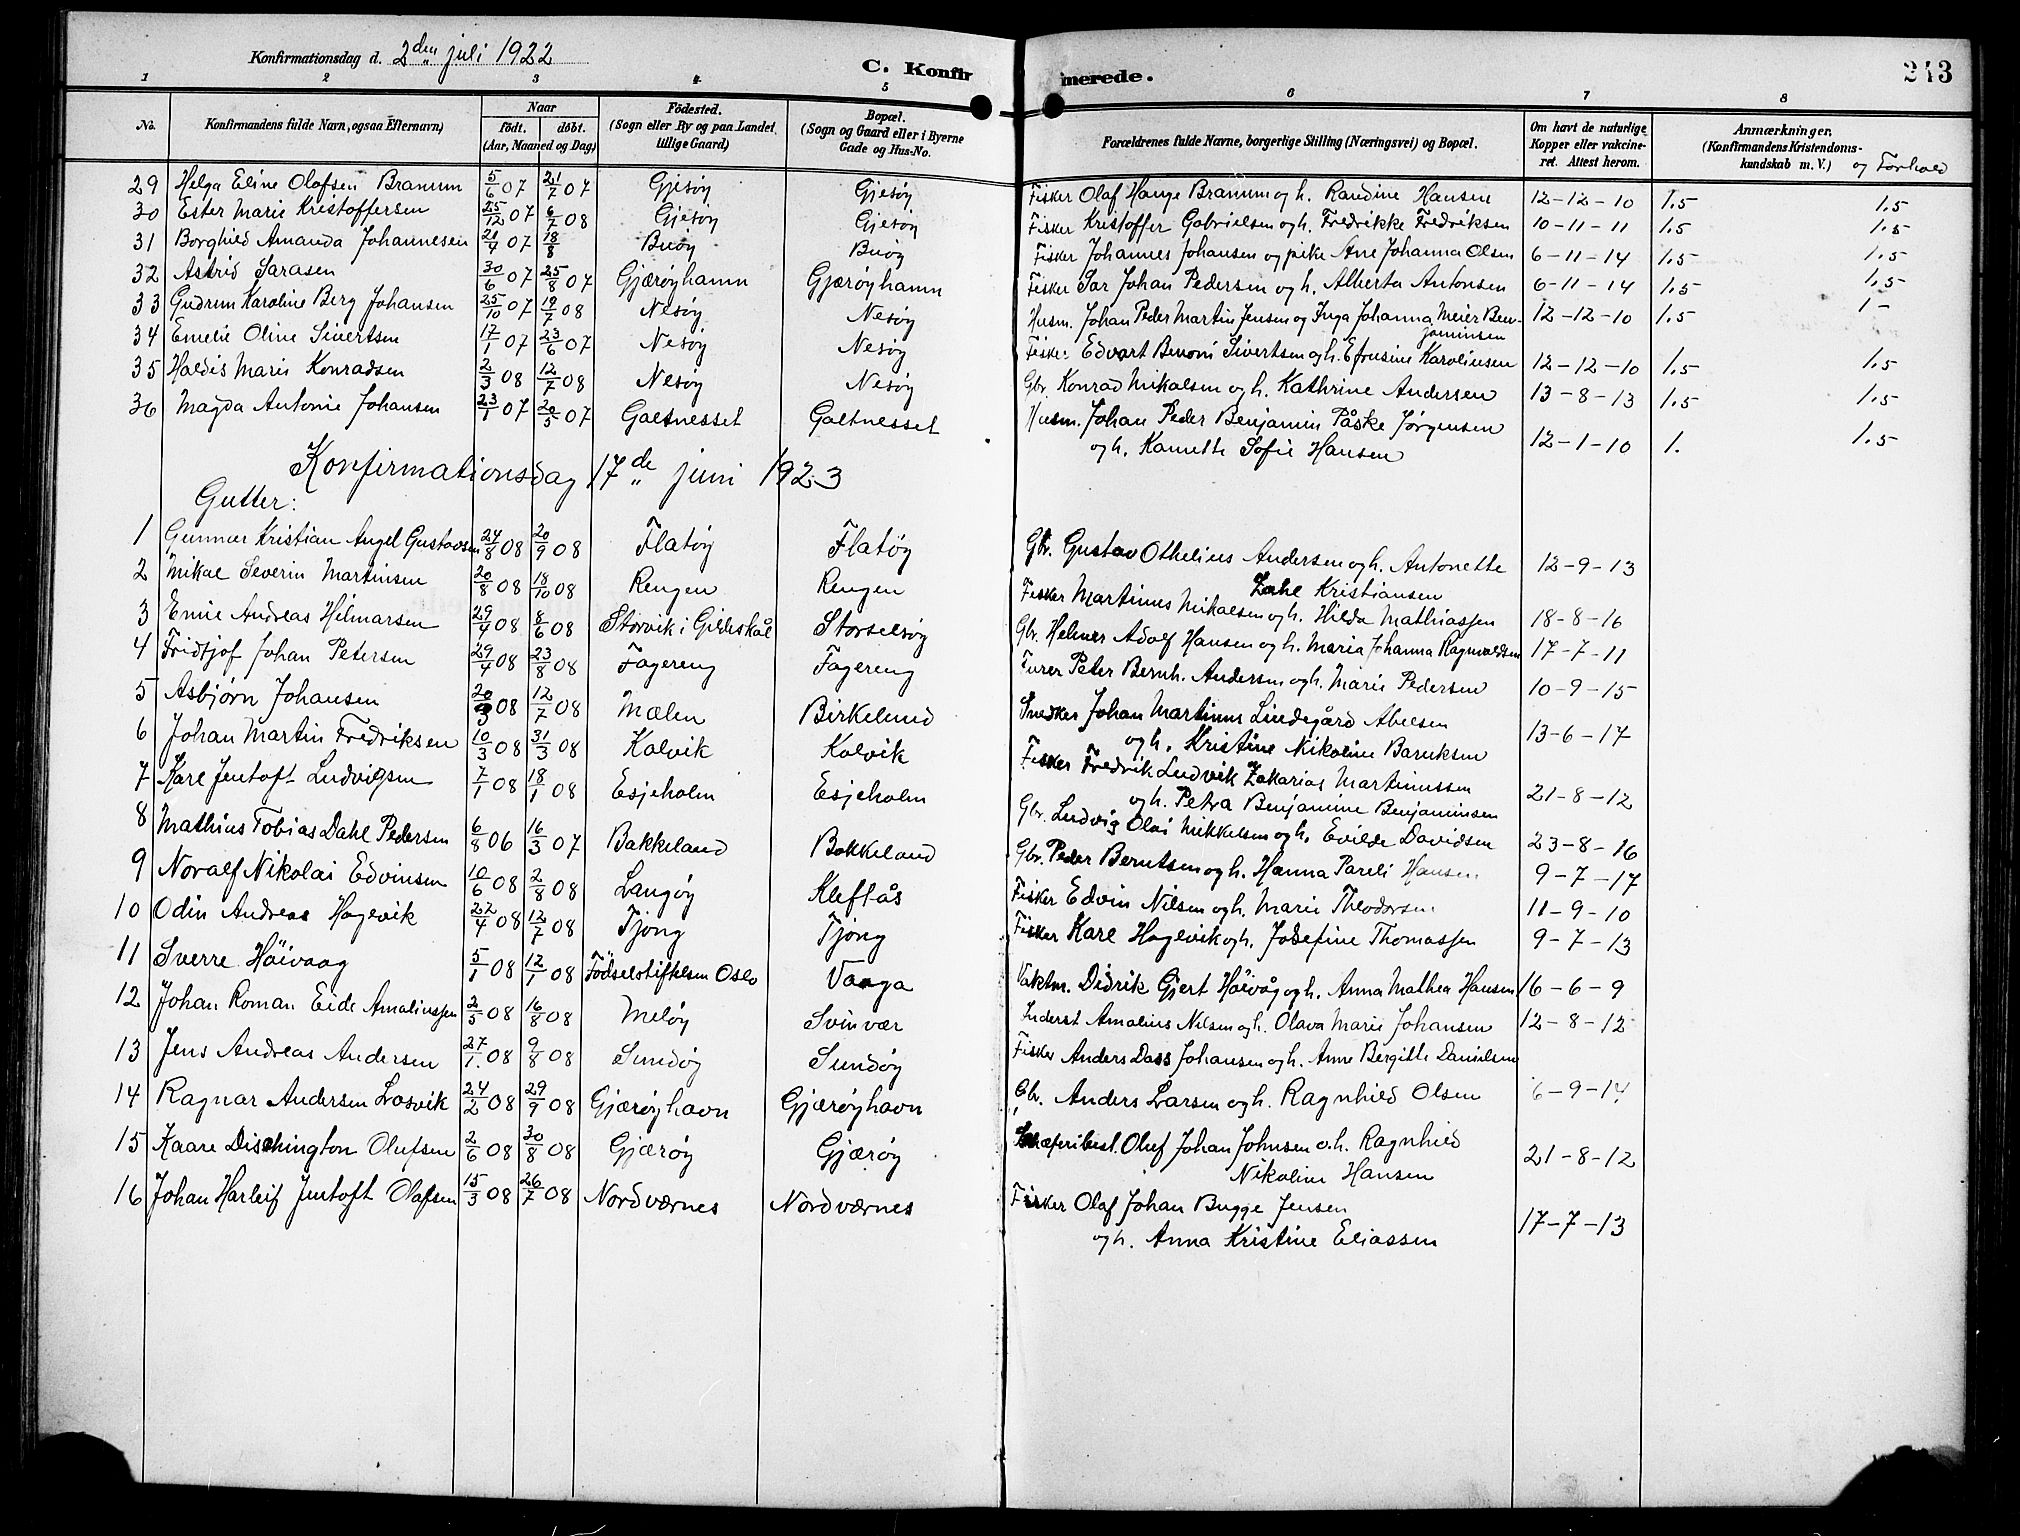 Konfirmationsdag d. 2den juli 1922
C. Konfirmerede.
243
1 2 3 4 5 6 7 8
No. Konfirmandens fulde Navn, ogsaa Efternavn) Naar født. døbt. (Aar, Maaned og Dag) Fødested. (Sogn eller By og paa Landet tillige Gaard) Bopæl. (Sogn og Gaard eller i Byerne Gade og Hus-No. Forældrenes fulde Navne, borgerlige Stilling (Næringsvei) og Bopæl. Om havt de naturlige Kopper eller vakcineret. Attest herom. Anmærkninger. (Konfirmandens Kristendomskundskab m. V.) og Forhold
29 Helga Eline Olafsen Bramum 5/6 07 21/7 07 Gjesøy Gjesøy Fisker Olaf Hange Bramum og h. Randine Hansen 12-12-10 1.5 1.5
30 Ester Marie Kristoffersen 25/12 07 6/7 08 Gjesøy Gjesøy Fisker Kristoffer Gabrielsen og h. Fredrikke Fredriksen 10-11-11 1.5 1.5
31 Borghild Amanda Johannesen 21/4 07 18/8 Buøy Buøy Fisker Johannes Johansen og pike Ane Johanna Olsen 6-11-14 1.5 1.5
32 Astrid Sarasen 30/6 07 25/8 07 Gjærøyhamn Gjærøyhamn Fisker Sar Johan Pedersen og h. Alberta Antonsen 6-11-14 1.5 1.5
33 Gudrun Karoline Berg Johansen 25/10 07 19/7 08 Nesøy Nesøy Husm. Johan Peder Martin Jensen og Inga Johanna Meier Ben- 12-12-10 1.5 1-
jaminsen
34 Emelie Oline Sivertsen 17/1 07 23/6 07 Nesøy Nesøy Fisker Edvart Benoni Sivertsen og h. Efrusine Karolinsen 12-12-10 1.5 1.5
35 Haldis Marie Konradsen 2/3 08 12/7 08 Nesøy Nesøy Gbr. Konrad Mikalsen og h. Kathrine Andersen 13-8-13 1.5 1.5
36 Magda Antonie Johansen 23/1 07 20/5 07 Galtnesset Galtnesset Husm. Johan Peder Benjamin Påske Jørgensen
og h. Kanutte Sofie Hansen 12-1-10 1. 1.5
Konfirmationsdag 17de juni 1923
Gutter:
1 Gunnar Kristian Angel Gustavsen 24/8 08 20/9 08 Flatøy Flatøy Gbr. Gustav Othelius Andersen og h. Antonette 12-9-13
Zahl Kristiansen
2 Mikal Severin Martinsen 20/8 08 18/10 08 Rengen Rengen Fisker Martinus Mikalsen og h. Hilda Mathiassen 18-8-16
3 Enie Andreas Hilmarsen 29/4 08 8/6 08 Storvik i Gildeskål Storselsøy Gbr. Helmer Adolf Hansen og h. Maria Johanna Ragnvaldsen 17-7-11
4 Fridtjof Johan Petersen 29/4 08 23/8 08 Fagereng Fagereng Furer Peter Bernh. Andersen og h. Marie Pedersen 10-9-15
5 Asbjørn Johansen 20/3 08 12/7 08 Mælen Birkelund Snedker Johan Martinus Lindegård Abelsen
og h. Kristine Nikoline Baruksen 13-6-17
6 Johan Martin Fredriksen 10/3 08 31/3 08 Kalvik Kalvik Fisker Fredrik Ludvik Zakarias Martinussen
og h. Petra Benjamine Benjaminsen 21-8-12
7 Karl Jentoft Ludvigsen 7/1 08 18/1 08 Esjeholm Esjeholm Gbr. Ludvig Olai Mikkelsen og h. Evilde Davidsen 23-8-16
8 Mathias Tobias Dahl Pedersen 6/8 06 16/3 07 Bakkeland Bakkeland Gbr. Peder Berntsen og h. Hanna Pareli Hansen 9-7-17
9 Noralf Nikolai Edvinsen 10/6 08 2/8 08 Langøy Kleftås Fisker Edvin Nilsen og h. Marie Theodorsen 11-9-10
10 Odin Andreas Hagevik 22/4 08 12/7 08 Tjong Tjong Fisker Karl Hagevik og h. Josefine Thomassen 9-7-13
11 Sverre Höivaag 5/1 08 12/1 08 Födselstiftelsen Oslo Vanga Vaktm. Didrik Gjert Höivåg og h. Anna Mathea Hansen 16-6-9
12 Johan Roman Eide Amaliussen 2/5 08 16/8 08 Meløy Svinvær Inderst Amalius Nilsen og h. Olava Marie Johansen 12-8-12
13 Jens Andreas Andersen 27/1. 08 9/8 08 Sundøy Sundøy Fisker Anders Dass Johansen og h. Anne Bergitte Danielsen
14 Ragnar Andersen Losvik 24/2 08 29/9 08 Gjærøyhavn Gjærøyhavn Gbr. Anders Larsen og h. Ragnhild Olsen 6-9-14
15 Kaare Dischington Olufsen 2/6 08 30/8 08 Gjærøy Gjærøy Oluf Johan Johnsen o.h. Ragnhild
Nikoline Hansen 21-8-12
16 Johan Harleif Jentoft Olafsen 15/3 08 26/7 08 Nordværnes Nordværnes Fisker Olaf Johan Bugge Jensen
og h. Anna Kristine Eliassen 17-7-13